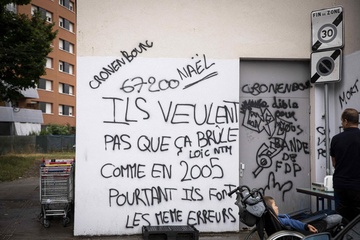 CRONENBOURG
67200 NAËL
ILS VEULENT
PAS QUE ÇA BRÛLE
COMME EN 2005
Loïc NTM
POURTANT ILS FONT
LES MEME ERREURS
CRONENBOURG
dibla
pour
vous
BANDE
DE
FDP
FIN DE ZONE
30
MORT